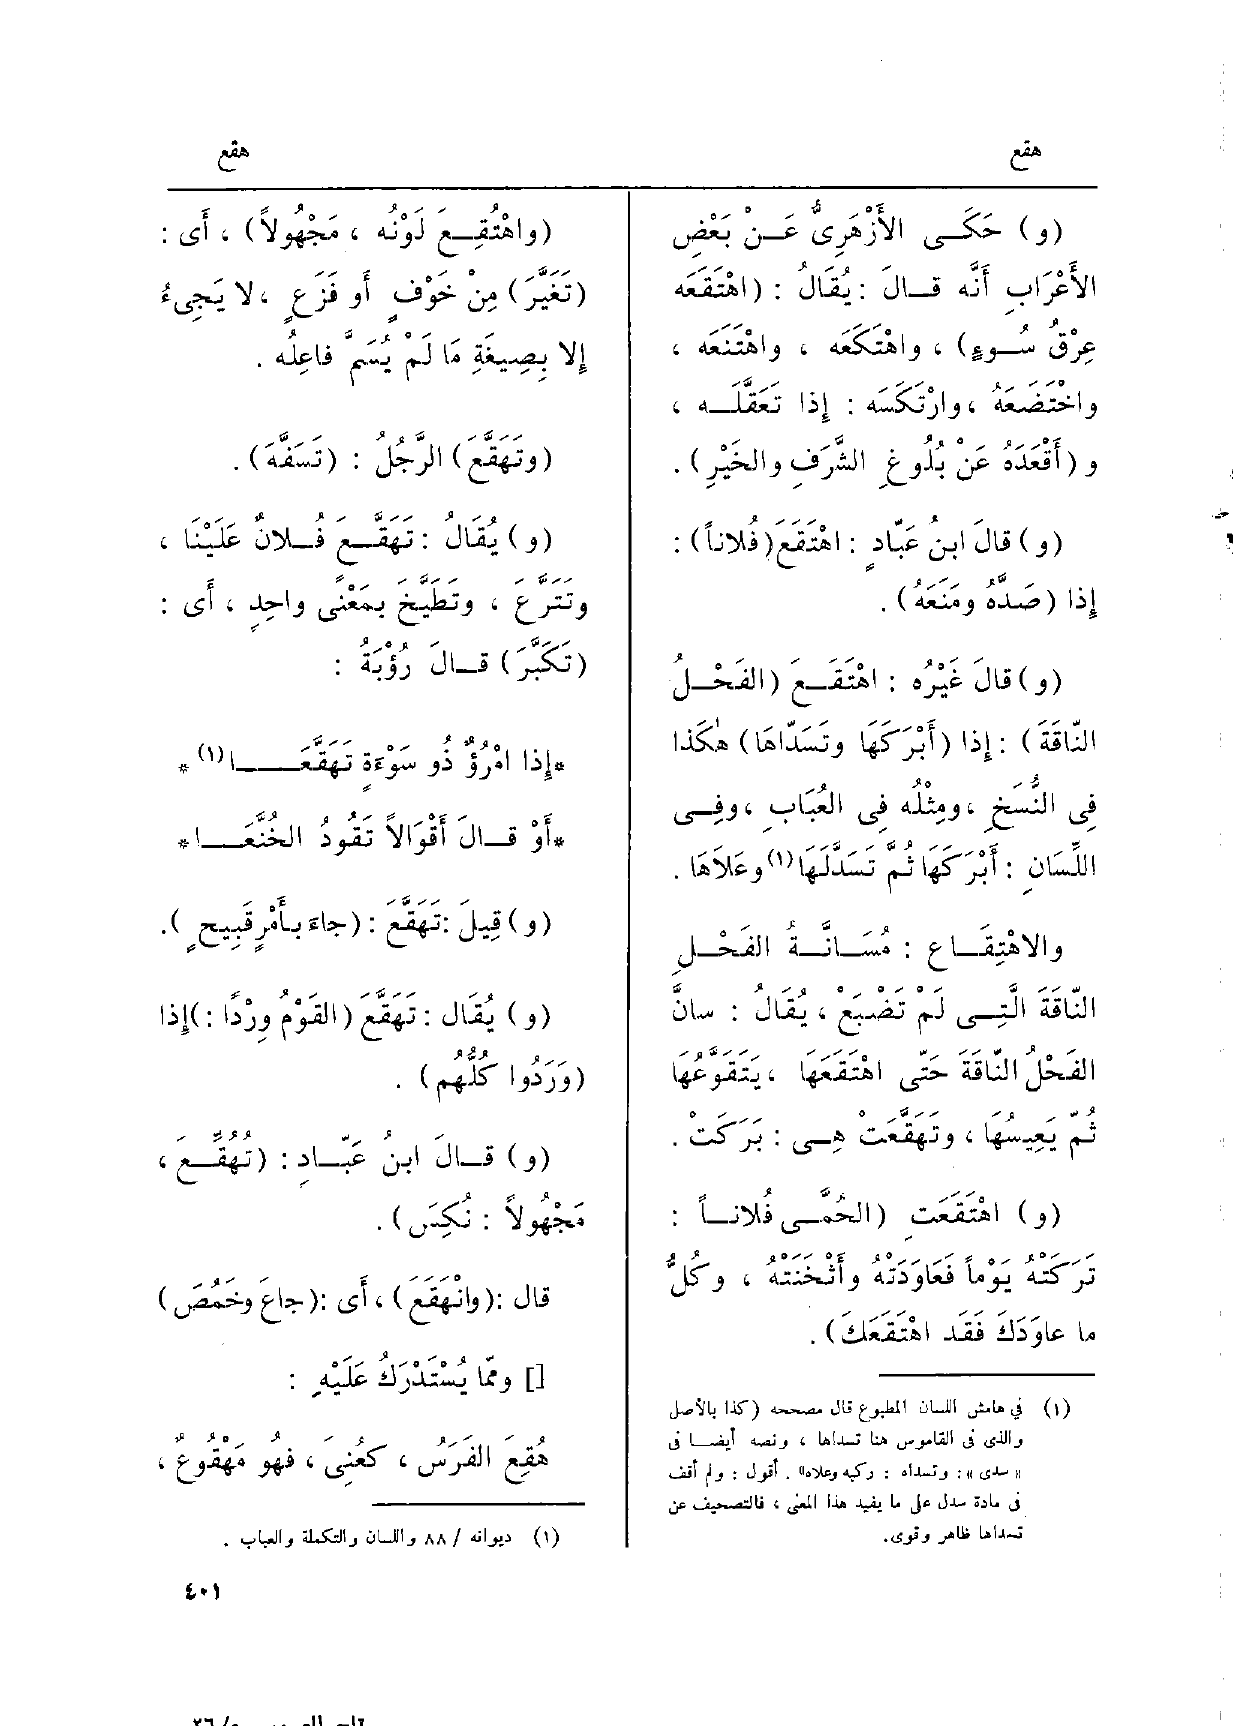 هقع
هقع
(و) حَكَى الأَزْهَرِىُّ عَنْ بَعْضِ
الأَعْرَابِ أَنَّه قالَ : يُقَالُ : (اهْتَقَعَه
عِرْقُ سُوءٍ) ، واهْتَكَعَه ، واهْتَنَعَه ،
واخْتَضَعَهُ ، وارْتَكَسَه : إِذا تَعَقَّلَه ،
و (أَقْعَدَهُ عَنْ بُلُوغِ الشَّرَفِ والخَيْرِ) .
(و) قالَ ابنُ عَبّادٍ : اهْتَقَعَ (فُلاناً) :
إِذا (صَدَّهُ ومَنَعَهُ) .
(و) قالَ غَيْرُه : اهْتَقَعَ (الفَحْلُ
النّاقَةَ) : إِذا (أَبْرَكَهَا وتَسَدّاهَا) هٰكَذا
فِى النُّسَخِ ، ومِثْلُه فِى العُبَابِ ، وفِى
اللِّسَانِ : أَبْرَكَهَا ثُمَّ تَسَدَّلَهَا (١) وعَلاَهَا .
والاهْتِقَاع : مُسَانَّةُ الفَحْلِ
النّاقَةَ الَّتِى لَمْ تَضْبَعْ ، يُقَالُ : سانَّ
الفَحْلُ النّاقَةَ حَتّى اهْتَقَعَهَا ، يَتَقَوَّعُهَا
ثُمّ يَعِيسُهَا ، وتَهَقَّعَتْ هِى : بَرَكَتْ .
(و) اهْتَقَعَتِ (الحُمَّى فُلاناً :
تَرَكَتْهُ يَوْماً فَعَاوَدَتْهُ وأَثْخَنَتْهُ ، وكُلُّ
ما عاوَدَكَ فَقَد اهْتَقَعَكَ) .
(١) فى هامش اللسان المطبوع قال مصححه (كذا بالأصل
والذى فى القاموس هنا تسداها ، ونصه أيضا فى
« سدى » : وتسداه : ركبه وعلاه» . أقول : ولم أقف
فى مادة سدل على ما يفيد هذا المعنى ، فالتصحيف عن
تسداها ظاهر وقوى.
(واهْتُقِعَ لَوْنُه ، مَجْهُولاً) ، أَى :
(تَغَيَّرَ) مِنْ خَوْفٍ أَو فَزَعٍ ، لا يَجِىءُ
إِلا بِصِيغَةِ مَا لَمْ يُسَمَّ فاعِلُه .
(وتَهَقَّعَ) الرَّجُلُ : (تَسَفَّهَ) .
(و) يُقَالُ : تَهَقَّعَ فُلانٌ عَلَيْنَا ،
وتَتَرَّعَ ، وتَطَيَّخَ بِمَعْنًى واحِدٍ ، أَى :
(تَكَبَّرَ) قالَ رُؤْبَةُ :
*إِذا امْرُؤٌ ذُو سَوْءَةٍ تَهَقَّعَا (١) *
*أَوْ قالَ أَقْوَالاً تَقُودُ الخُنَّعَا*
(و) قِيلَ : تَهَقَّعَ : (جاءَ بأَمْرٍ قَبِيحٍ ).
(و) يُقَال : تَهَقَّعَ (القَوْمُ وِرْدًا : )إِذا
(وَرَدُوا كُلُّهُم) .
(و) قالَ ابنُ عَبّادٍ : (تُهُقِّعَ ،
مَجْهُولاً : نُكِسَ) .
قال : (وانْهَقَعَ) ، أَى : (جاعَ وخَمُصَ)
[] وممّا يُسْتَدْرَكُ عَلَيْهِ :
هُقِعَ الفَرَسُ ، كعُنِىَ ، فهُو مَهْقُوعٌ ،
(١) ديوانه / ٨٨ واللسان والتكملة والعباب .
٤٠١